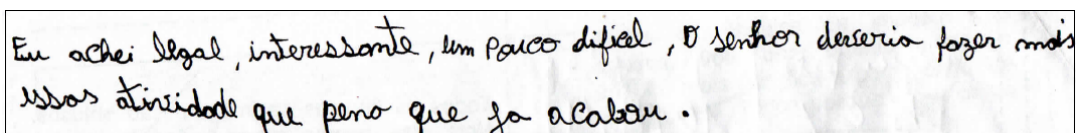 Eu achei legal, interessante, um pouco difícel, O senhor deveria fazer mais
essas atividade que pena que ja acabou.